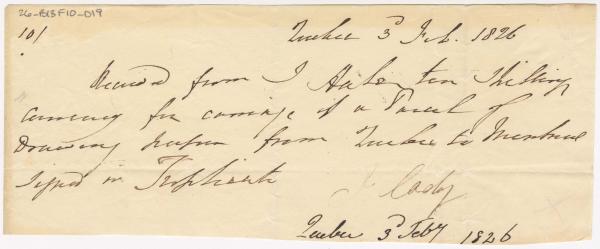 26-B13F10-D19
10/ Quebec 3d Feb. 1826
Received from J Hale ten Shillings
currency for carriage of a Parcel of
Drawing from Quebec to Montreal
Signed in Triplicate
J Cady
Quebec 3d Feby 1826